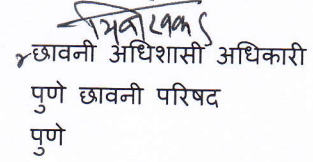 छावनी अधिशासी अधिकारी
पुणे छावनी परिषद
पुणे